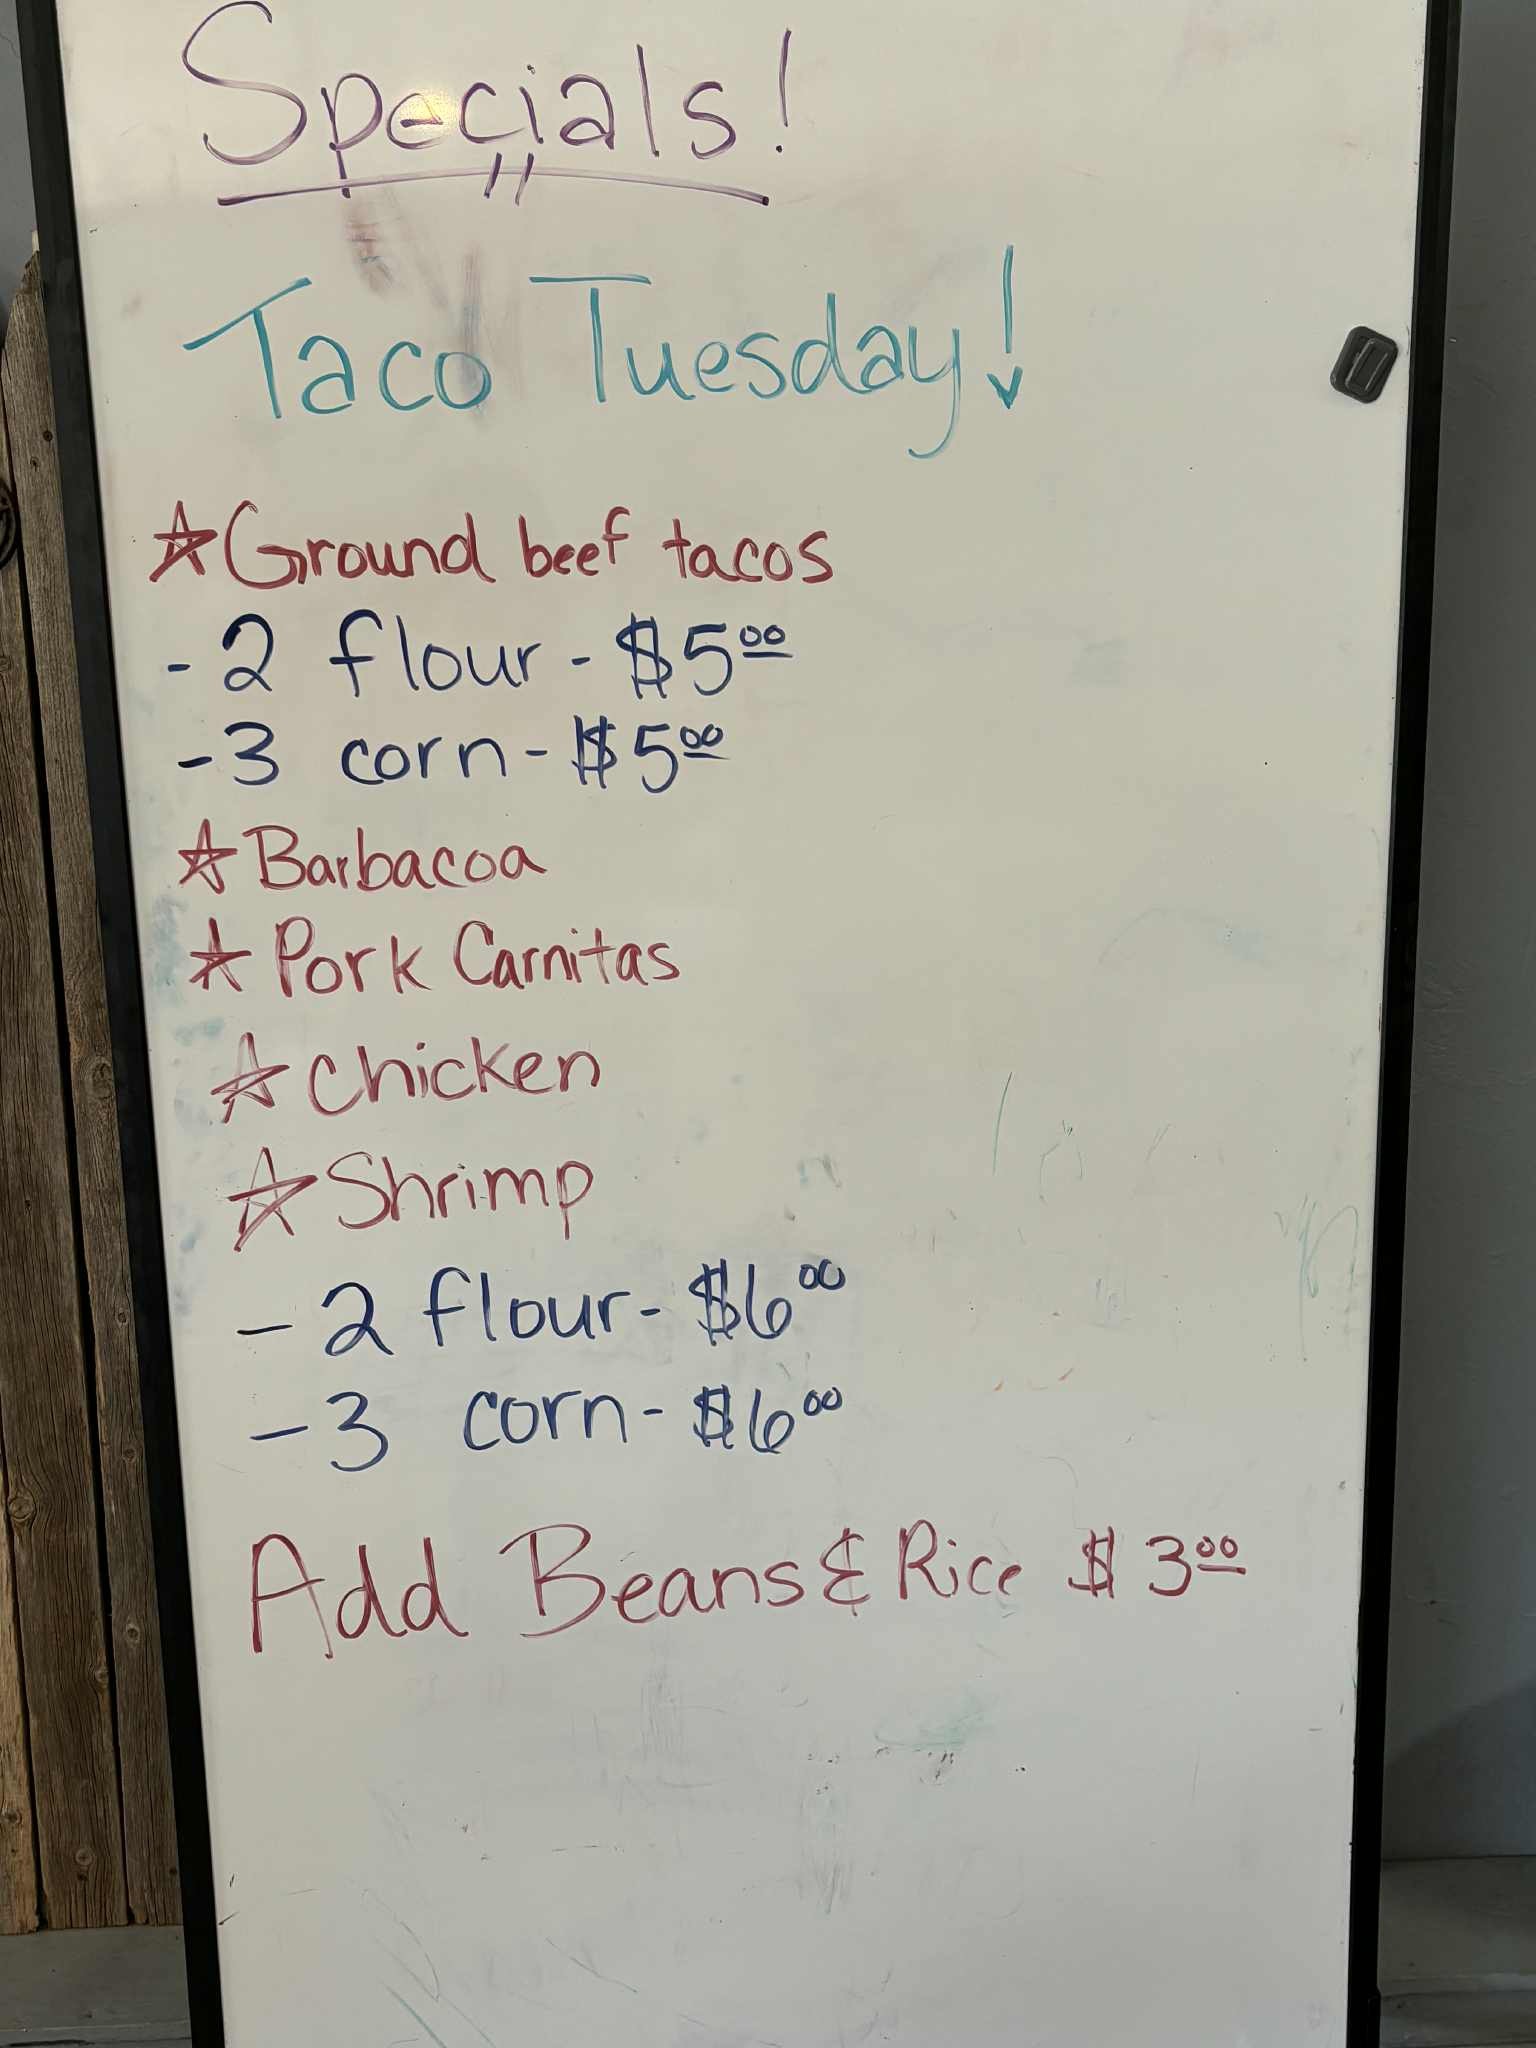 Specials!
Taco Tuesday!
☆Ground beef tacos
-2 flour - $5⁰⁰
-3 corn - $5⁰⁰
☆Barbacoa
☆Pork Carnitas
☆Chicken
☆Shrimp
-2 flour - $6⁰⁰
-3 corn - $6⁰⁰
Add Beans & Rice $3⁰⁰